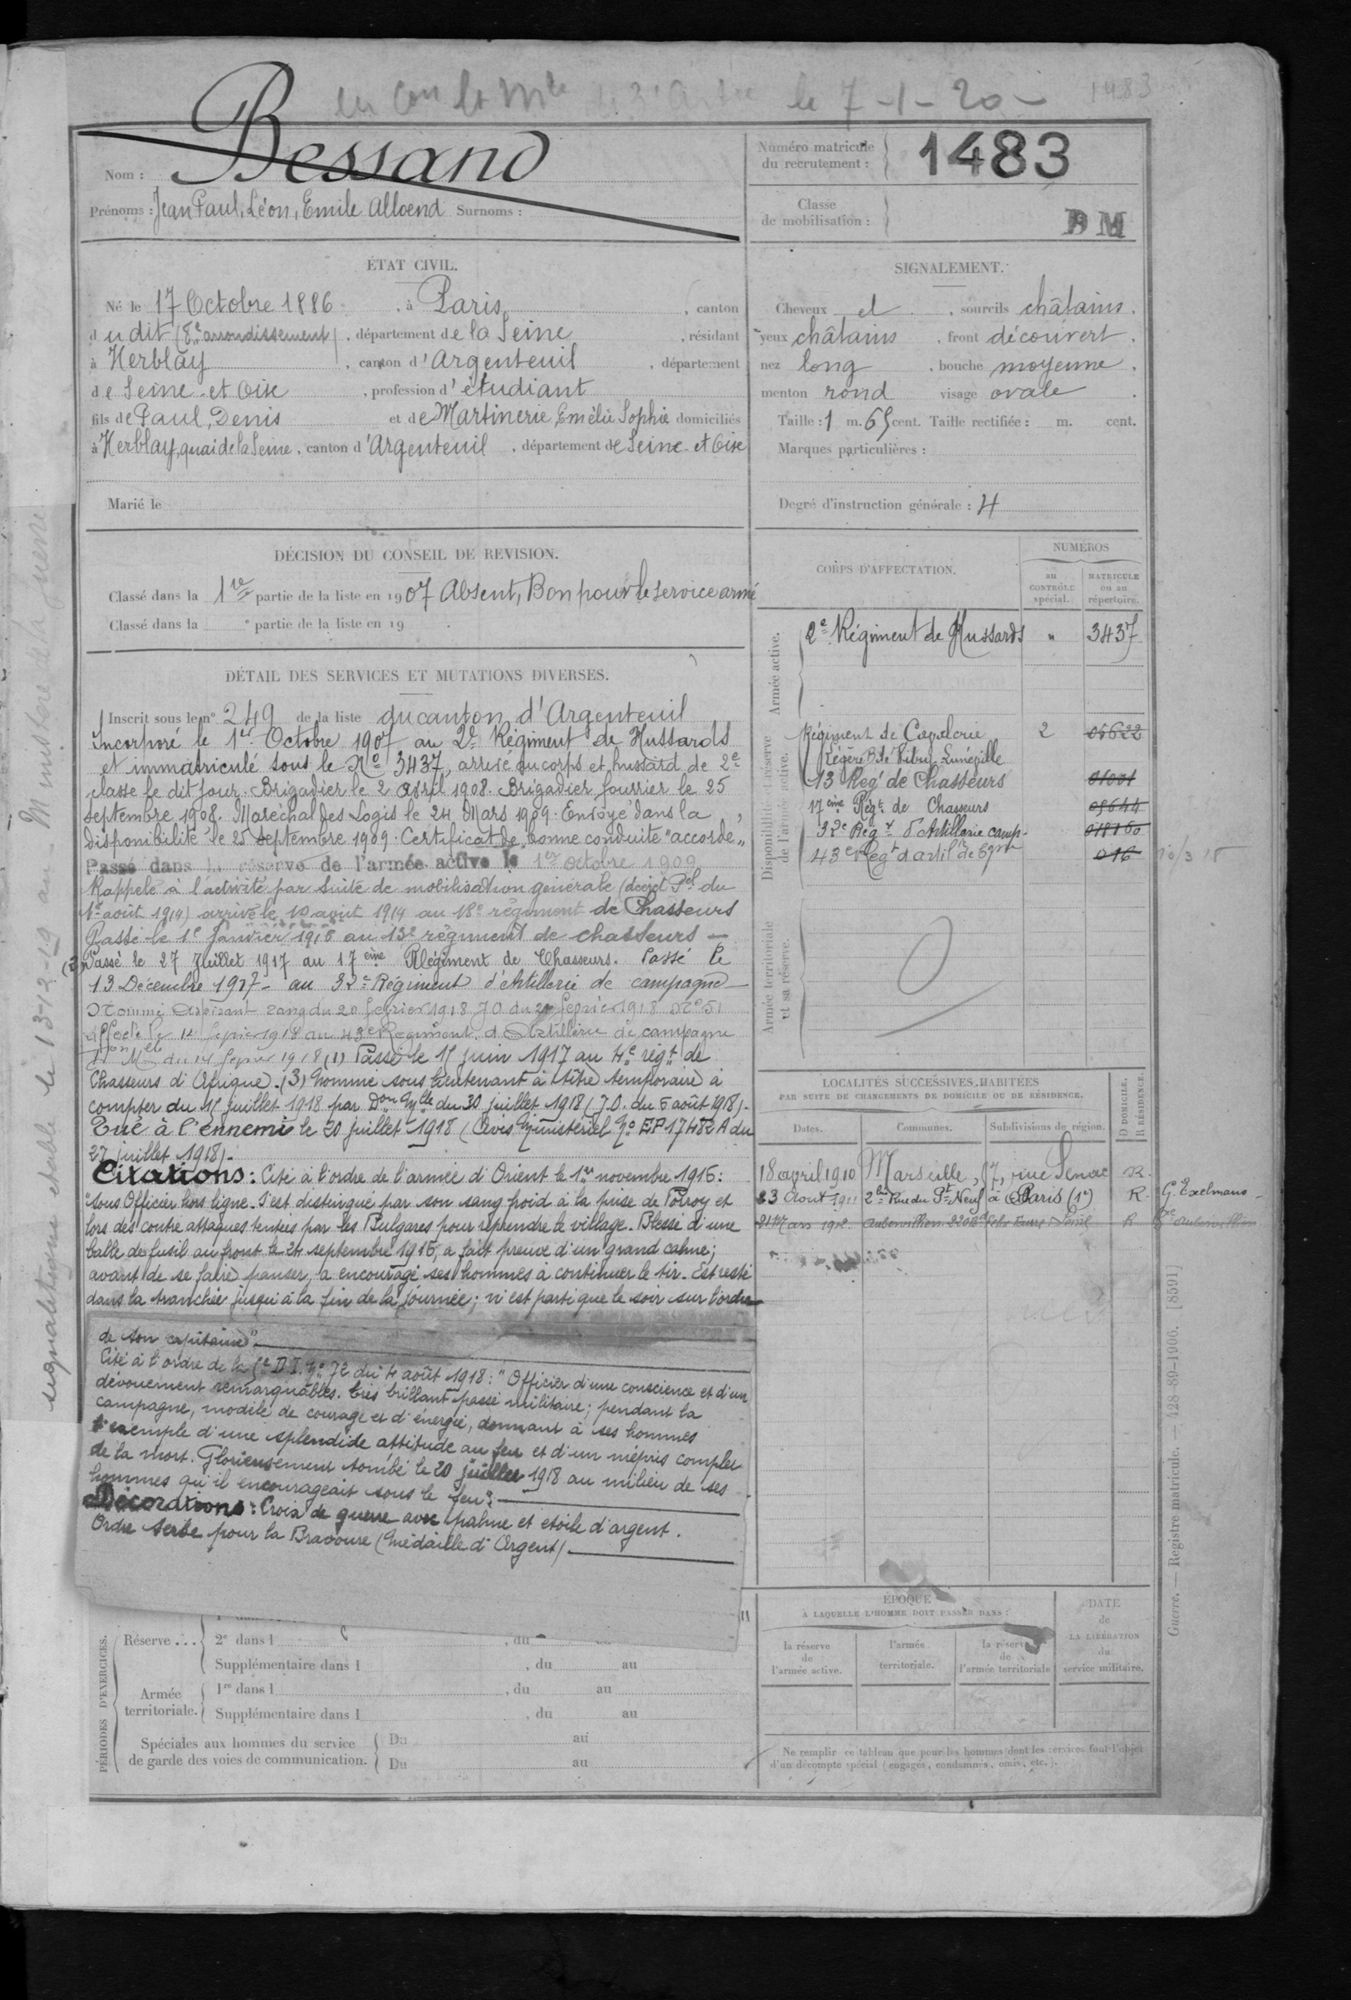 le 7-1-20
1483
Nom : Bessand
Prénoms : Jean Paul, Léon, Emile Alloend Surnoms :
Numéro matricule du recrutement : 1483
Classe de mobilisation :
DM
ÉTAT CIVIL.
Né le 17 Octobre 1886, à Paris, canton
dudit (8e arrondissement), département de la Seine, résidant
à Herblay, canton d'Argenteuil, département
de Seine-et-Oise, profession d'étudiant
fils de Paul, Denis et de Martinerie Emélie Sophie domiciliés
à Herblay, quai de la Seine, canton d'Argenteuil, département de Seine-et-Oise
Marié le
SIGNALEMENT.
Cheveux et, sourcils châtains.
yeux châtains, front découvert.
nez long, bouche moyenne.
menton rond visage ovale.
Taille : 1 m. 65 cent. Taille rectifiée : m. cent.
Marques particulières :
Degré d'instruction générale : 4
DÉCISION DU CONSEIL DE REVISION.
Classé dans la 1re partie de la liste en 1907 Absent, Bon pour le service armé
Classé dans la e partie de la liste en 19 .
DÉTAIL DES SERVICES ET MUTATIONS DIVERSES.
Inscrit sous le no 249 de la liste du canton d'Argenteuil
Incorporé le 1er Octobre 1907 au 2e Régiment de Hussards
et immatriculé sous le No 3437, arrivé au corps et hussard de 2e
classe le dit jour. Brigadier le 2 avril 1908. Brigadier fourrier le 25
septembre 1908. Maréchal des Logis le 24 Mars 1909. Envoyé dans la
disponibilité le 25 septembre 1909. Certificat de bonne conduite "accordé"
Passé dans la réserve de l'armée active le 1er octobre 1909
Rappelé à l'activité par suite de mobilisation générale (décret Pel du
1er août 1914) arrivé le 10 août 1914 au 18e régiment de Chasseurs
Passé le 1er Janvier 1916 au 13e régiment de chasseurs —
Passé le 27 Juillet 1917 au 17ème Régiment de Chasseurs. Passé le
13 Décembre 1917 - au 32e Régiment d'Artillerie de campagne
Nommé Aspirant rang du 20 février 1918 JO du 20 février 1918 No 51
Affecté le 14 février 1918 au 43e Régiment d'Artillerie de campagne
Don Mlle du 14 février 1918 (1) Passé le 15 juin 1917 au 4e régt de
Chasseurs d'Afrique. (3) Nommé sous lieutenant à titre temporaire à
compter du 15 juillet 1918 par Don Mlle du 30 juillet 1918 (J.O. du 5 août 1918).
Tué à l'ennemi le 20 juillet 1918 (Avis Ministériel No EP 17482 A du
27 juillet 1918).
Citations : Cité à l'ordre de l'armée d'Orient le 1er novembre 1916 :
"Sous Officier hors ligne. S'est distingué par son sang froid à la prise de Petroy et
lors des contre attaques tentées par les Bulgares pour reprendre le village. Blessé d'une
balle de fusil au front le 24 septembre 1916, a fait preuve d'un grand calme ;
avant de se faire panser, a encouragé ses hommes à continuer le tir. Est resté
dans la tranchée jusqu'à la fin de la journée ; n'est parti que le soir sur l'ordre
de son capitaine".
Cité à l'ordre de la D.I. No 72 du 4 août 1918 : "Officier d'une conscience et d'un
dévouement remarquables. très brillant passé militaire ; pendant la
campagne, modèle de courage et d'énergie, donnant à ses hommes
l'exemple d'une splendide attitude au feu et d'un mépris complet
de la mort. Glorieusement tombé le 20 juillet 1918 au milieu de ses
hommes qu'il encourageait sous le feu".
Décorations : Croix de guerre avec palme et étoile d'argent.
Ordre serbe pour la Bravoure (Médaille d'Argent)
PÉRIODES D'EXERCICES.
Réserve ... 2e dans l , du
Supplémentaire dans l , du au
Armée territoriale. 1re dans l , du au
Supplémentaire dans l , du au
Spéciales aux hommes du service de garde des voies de communication. Du au
Du au
CORPS D'AFFECTATION.
NUMÉROS
au CONTRÔLE spécial.
MATRICULE ou au répertoire.
Armée active.
2e Régiment de Hussards " 3437
Disponibilité et réserve de l'armée active.
Régiment de Cavalerie 2 05622
Légère Lunéville
13 Regt de Chasseurs
17ème Régt de Chasseurs 05644
32e Regt d'Artillerie camp.
43e Regt d'artil de cgne 016 10/3 18
Armée territoriale et sa réserve.
LOCALITÉS SUCCESSIVES HABITÉES
PAR SUITE DE CHANGEMENTS DE DOMICILE OU DE RÉSIDENCE.
Dates. Communes. Subdivisions de région. D DOMICILE. R RÉSIDENCE.
18 avril 1910 Marseille, 57, rue Senac R.
23 Aout 1911 2bis Rue du Pt Neuf à Paris (1er) R. G. Exelmans
Mars 1912 Aubervilliers R
ÉPOQUE
À LAQUELLE L'HOMME DOIT PASSER DANS :
la réserve de l'armée active.
l'armée territoriale.
la réserve de l'armée territoriale
DATE de LA LIBÉRATION du service militaire.
Ne remplir ce tableau que pour les hommes dont les services font l'objet
d'un décompte spécial (engagés, condamnés, omis, etc.).
Guerre. — Registre matricule. — 428-89-1906. [8591]
signalétiques établi le 13-12-19 au Ministère de la guerre